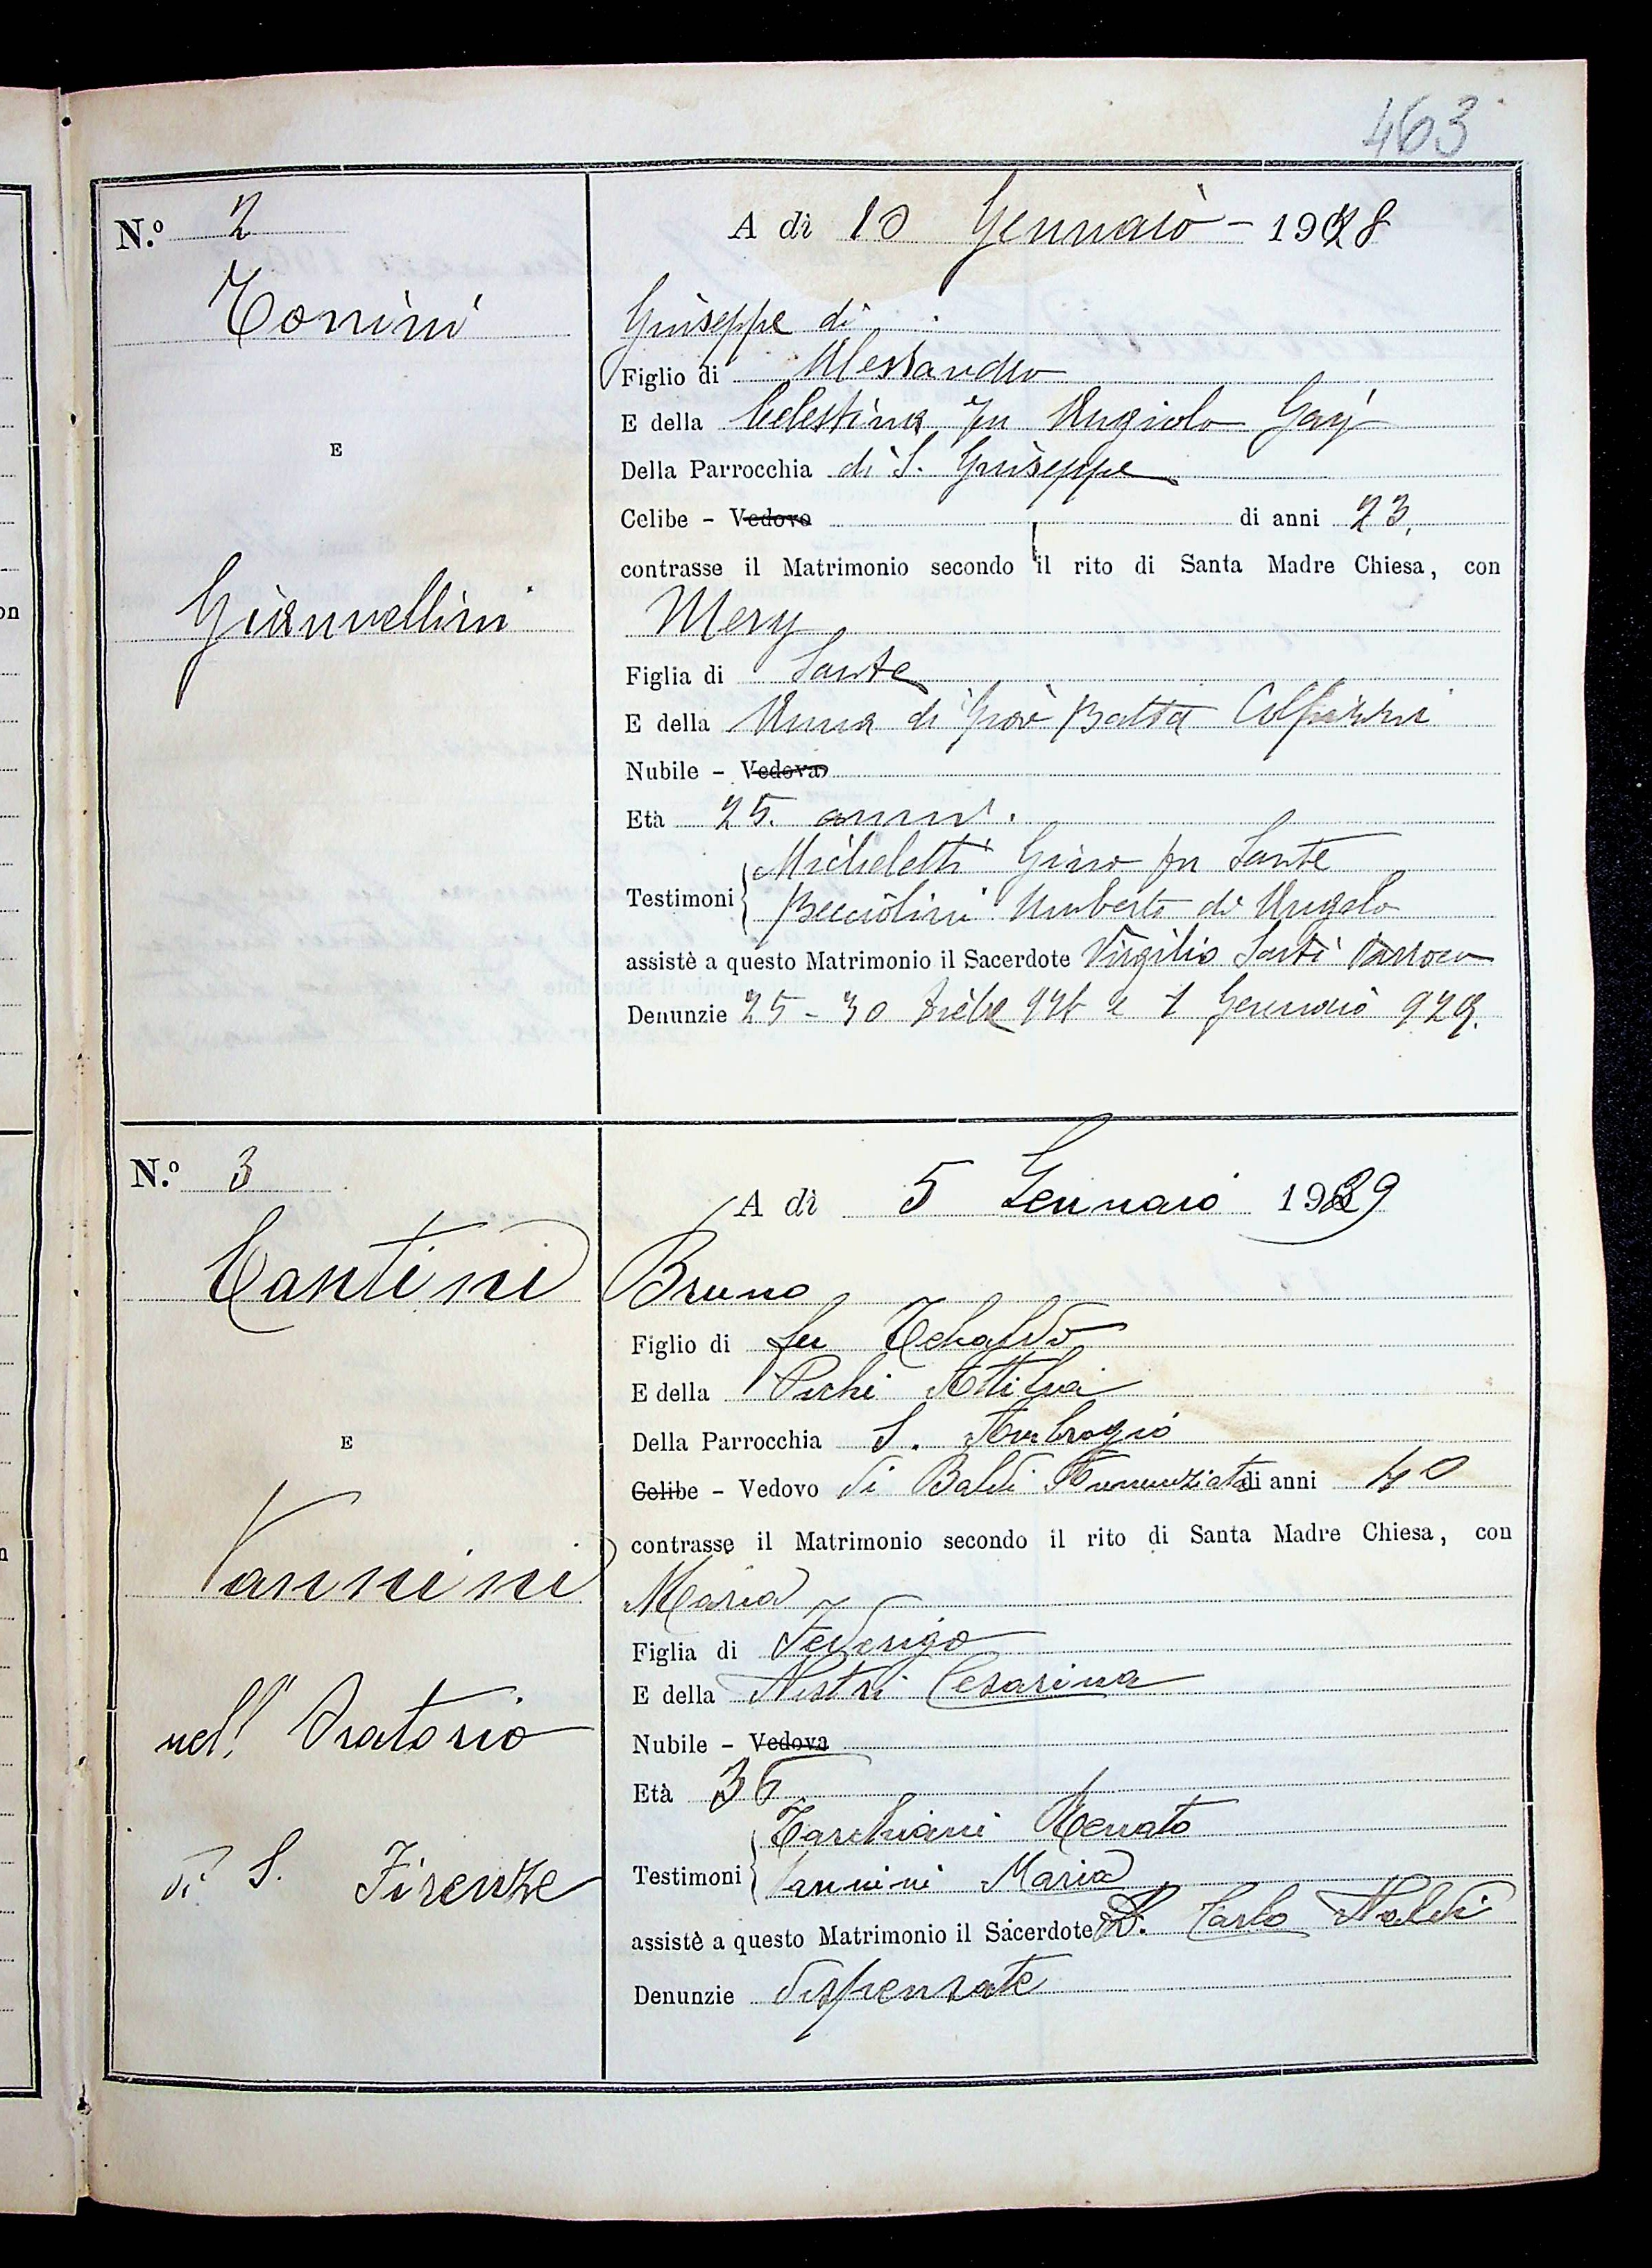 463
N.º 2
A dì 10 Gennaio - 1928
Tonini
Giuseppe di
Figlio di Alessandro
E della Celestina fu Angiolo Gori
E
Della Parrocchia di S. Giuseppe
Celibe - Vedovo di anni 23.
contrasse il Matrimonio secondo il rito di Santa Madre Chiesa, con
Giannellini
Mery
Figlia di Sante
E della Anna di Giov Batta
Nubile - Vedova
Età 25. anni.
Micheletti Gino fu Sante
Testimoni
Becciolini Umberto di Angelo
assistè a questo Matrimonio il Sacerdote Virgilio Sarti Parroco
Denunzie 25 - 30 e 1 Gennaio 929.
N.º 3
A dì 5 Gennaio 1929
Cantini
Bruno
Figlio di fu Tebaldo
E della Pichi Attilia
Della Parrocchia S. Ambrogio
E
Celibe - Vedovo di Baldi Annunziata di anni 40
contrasse il Matrimonio secondo il rito di Santa Madre Chiesa, con
Vannini
Maria
Figlia di Federigo
E della Nistri Cesarina
nell' Oratorio
Nubile - Vedova
Età 36
Tarchiani Renato
di S. Firenze
Testimoni
Vannini Maria
assistè a questo Matrimonio il Sacerdote D. Carlo Naldi
Denunzie dispensate